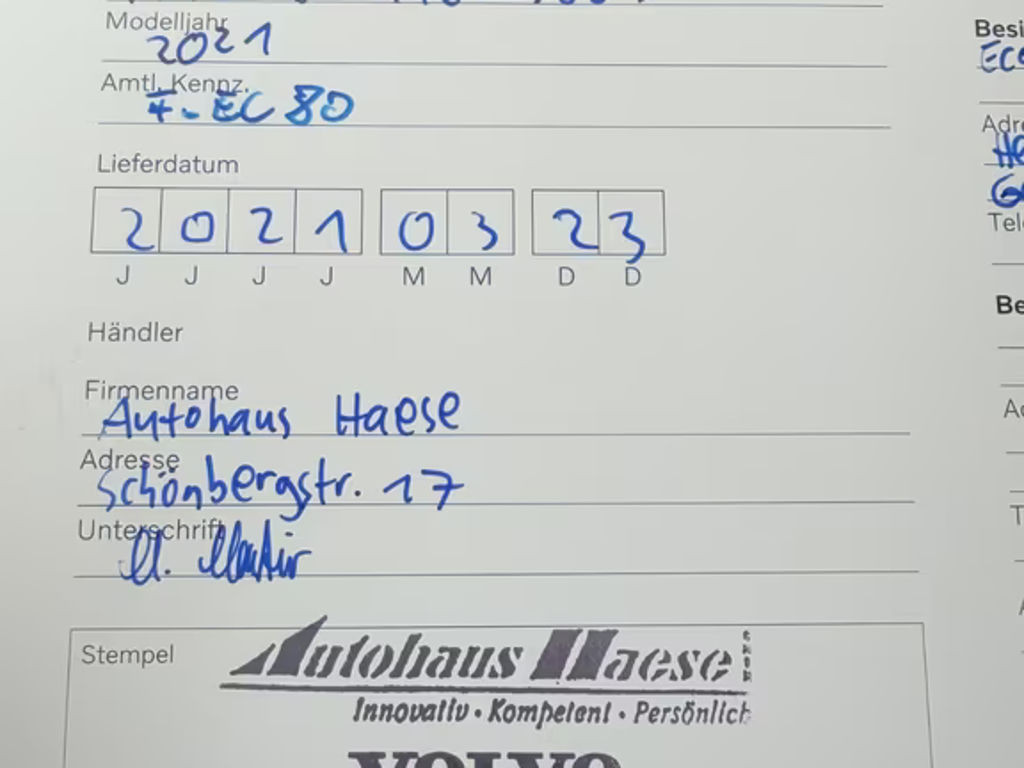 Modelljahr
2021
Amtl. Kennz.
F-EC 80
Lieferdatum
2 0 2 1 0 3 2 3
J J J J M M D D
Händler
Firmenname
Autohaus Haese
Adresse
Schönbergstr. 17
Unterschrift
Stempel
Autohaus Haese
Innovativ • Kompetent • Persönlich
VOLVO
Besi
Adre
Tele
Be